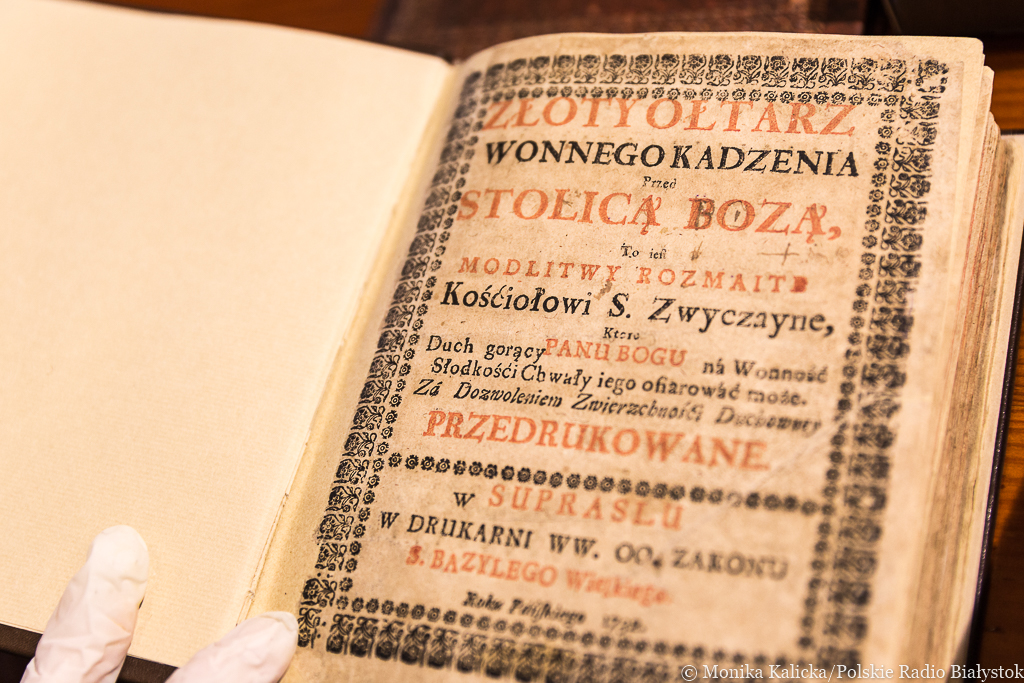 ZŁOTY OŁTARZ
WONNEGO KADZENIA
Przed
STOLICĄ BOZĄ,
To iest
MODLITWY ROZMAITE
Kośćiołowi S. Zwyczayne,
Ktore
Duch gorący PANU BOGU ná Wonność
Słodkośći Chwały iego ofiarowáć może.
Zá Dozwoleniem Zwierzchnośći Duchowney
PRZEDRUKOWANE.
w SUPRASLU
W DRUKARNI WW. OO. ZAKONU
S. BAZYLEGO Wielkiego.
Roku Pańskiego
© Monika Kalicka/Polskie Radio Białystok